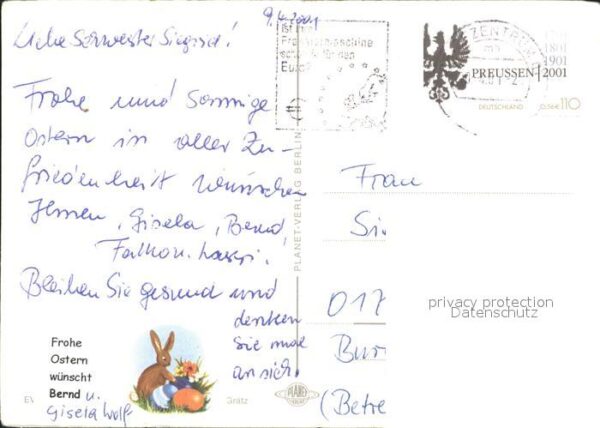 9.4.2001
Liebe Schwester Sigrid!
Frohe und Sonnige
Ostern in aller Zu-
friedenheit wünschen
Ihnen, Gisela, Bernd,
Bleiben Sie gesund und
denken
Sie mal
an sich.
Frohe
Ostern
wünscht
Bernd u.
Gisela Wolf
Grätz
PLANET-VERLAG BERLIN
PLANET
ZENTRUM
1701
1801
1901
PREUSSEN 2001
DEUTSCHLAND 0,56€ 110
Frau
Si
017
Bur
(Betre
privacy protection
Datenschutz